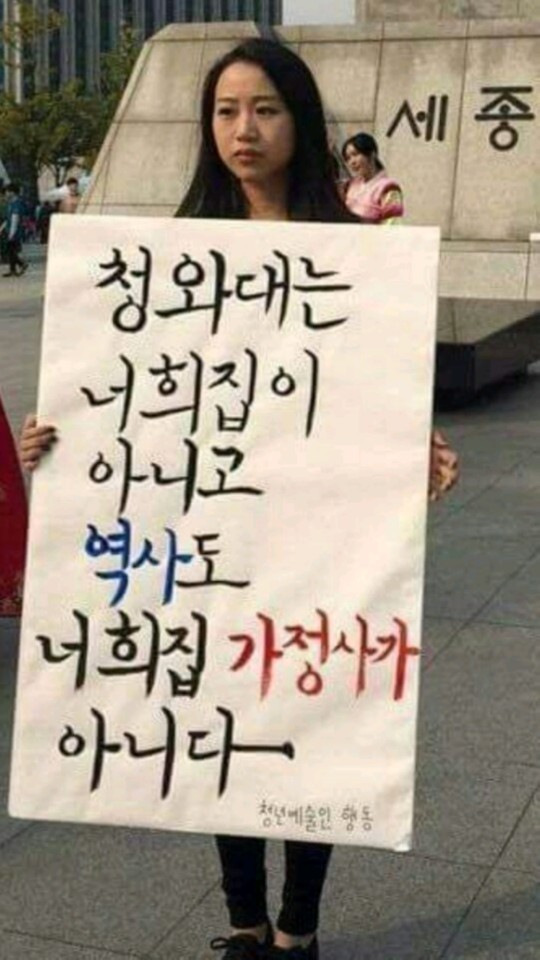 세종
청와대는
너희집이
아니고
역사도
너희집 가정사가
아니다
청년예술인 행동